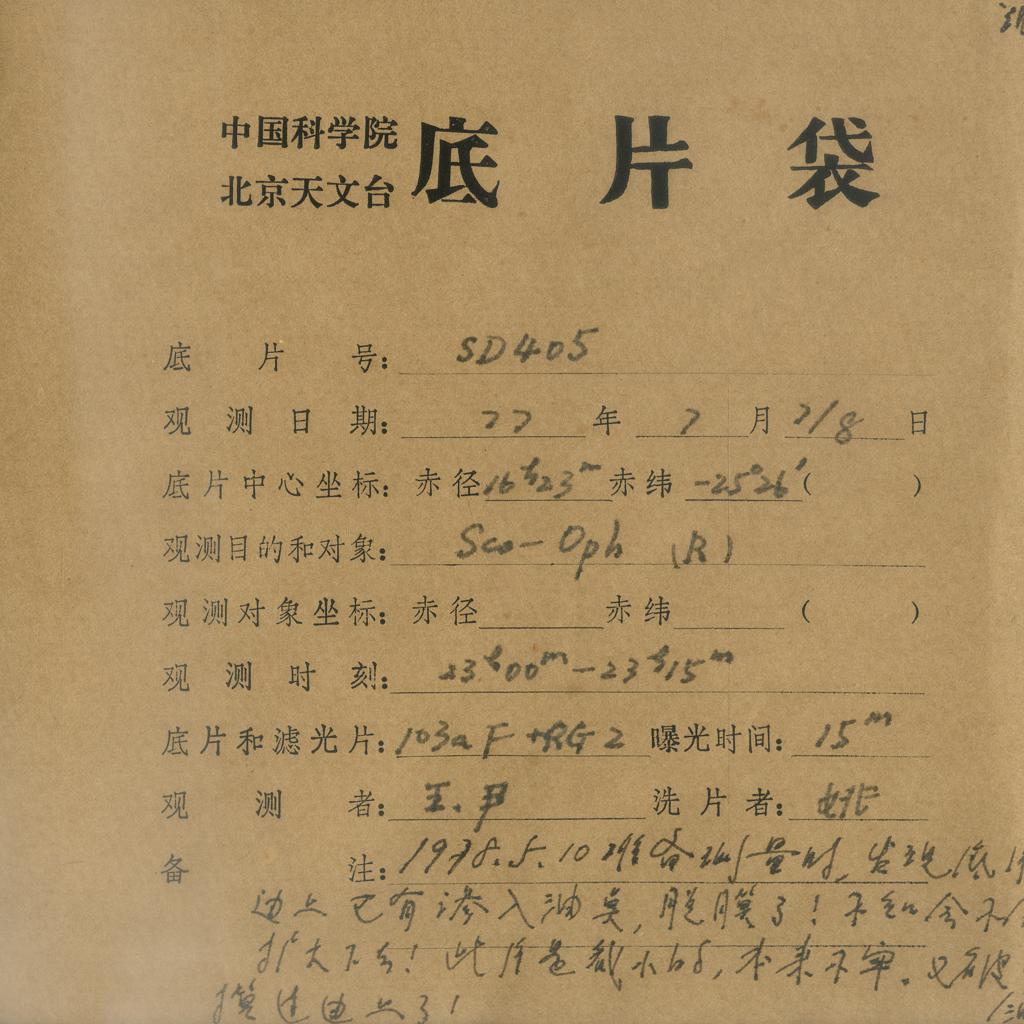 中国科学院
北京天文台
底片袋
底片号: SD405
观测日期: 77年 7月 7/8日
底片中心坐标: 赤径16ʰ23ᵐ赤纬 -25°26′( )
观测目的和对象: Sco-Oph (R)
观测对象坐标: 赤径 赤纬 ( )
观测时刻: 23ʰ00ᵐ-23ʰ15ᵐ
底片和滤光片: 103aF+RG2 曝光时间: 15ᵐ
观测者: 王、尹 洗片者: 姚
备注: 1978.5.10准备测量时,发现底片
边上已有渗入油,脱膜了!不知会不会
扩大下去!此片是裁小的,本来不牢。又被
擦边上了!